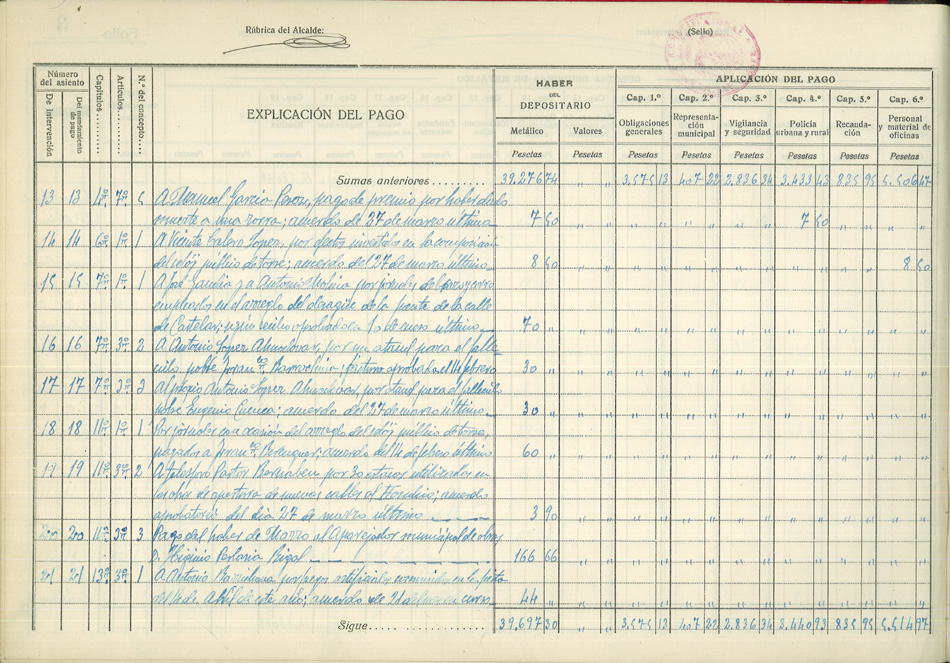 Rúbrica del Alcalde:
(Sello)
Número del asiento
De intervención
Del mandamiento de pago
Capítulos
Artículos
N.º del concepto
EXPLICACIÓN DEL PAGO
HABER
DEL
DEPOSITARIO
Metálico
Valores
Pesetas
Pesetas
APLICACIÓN DEL PAGO
Cap. 1.º
Cap. 2.º
Cap. 3.º
Cap. 4.º
Cap. 5.º
Cap. 6.º
Obligaciones generales
Representación municipal
Vigilancia y seguridad
Policía urbana y rural
Recaudación
Personal y material de oficinas
Pesetas
Pesetas
Pesetas
Pesetas
Pesetas
Pesetas
Sumas anteriores 39.276 74 3.575 13 407 22 2.836 34 3.433 43 835 95 5.506 47
13 13 4º 7º 5 A Manuel García Perez, pago de premio por haber dado
muerte a una zorra; acuerdo del 27 de marzo último 7 50 7 50
14 14 6º 1º 1 A Vicente Calero Lopez, por efectos invertidos en la composición
del reloj público de torre; acuerdo del 27 de marzo último 8 50 8 50
15 15 7º 1º 1 A José García y a Antonio por jornales de
empleados en el arreglo del desagüe de la fuente de la calle
de Castelar; según recibo aprobado en 10 de enero último 70
16 16 7º 3º 2 A Antonio Lopez Almodovar, por un ataud para el falle-
cido, pobre Franco. factura aprobada el 14 febrero 30
17 17 7º 3º 2 Al propio Antonio Lopez Almodovar, por ataud para el fallecido
pobre Eugenio Cuenca; acuerdo del 27 de marzo último 30
18 18 11º 1º 1 Por jornales con ocasión del arreglo del reloj público de torre,
pagados a Franco. Berenguer; acuerdo del 14 de febrero último 60
19 19 11º 3º 2 A Telesforo Pastor Bernabeu por 30 utilizados en
las obras de apertura de nuevas calles al acuerdo
aprobatorio del dia 27 de marzo último 3 90
20 20 11º 3º 3 Pago del haber de Marzo al Aparejador municipal de obras
D. Higinio Perlasia Rigal 166 66
21 21 13º 3º 1 A Antonio por fuegos artificiales consumidos en la fiesta
del 14 de Abril de este año; acuerdo de 21 del mes en curso 44
Sigue 39.697 30 3.575 13 407 22 2.836 34 3.440 93 835 95 5.514 97